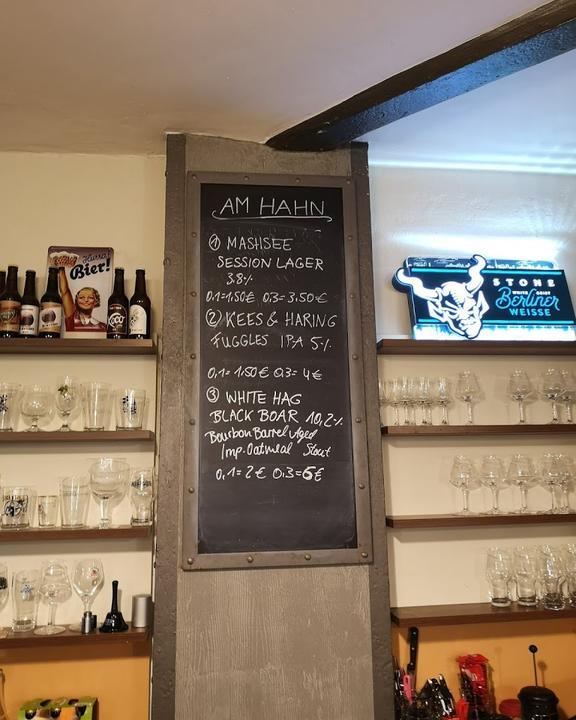 AM HAHN
① MASHSEE
SESSION LAGER
3,8%
0,1=1,50€ 0,3=3,50€
② KEES & HARING
FUGGLES IPA 5%
0,1= 1,50€ 0,3= 4€
③ WHITE HAG
BLACK BOAR 10,2%
Bourbon Barrel Aged
Imp. Oatmeal Stout
0,1=2€ 0,3=6€
Hurra!
Bier!
STONE
WHITE GEIST
Berliner
WEISSE